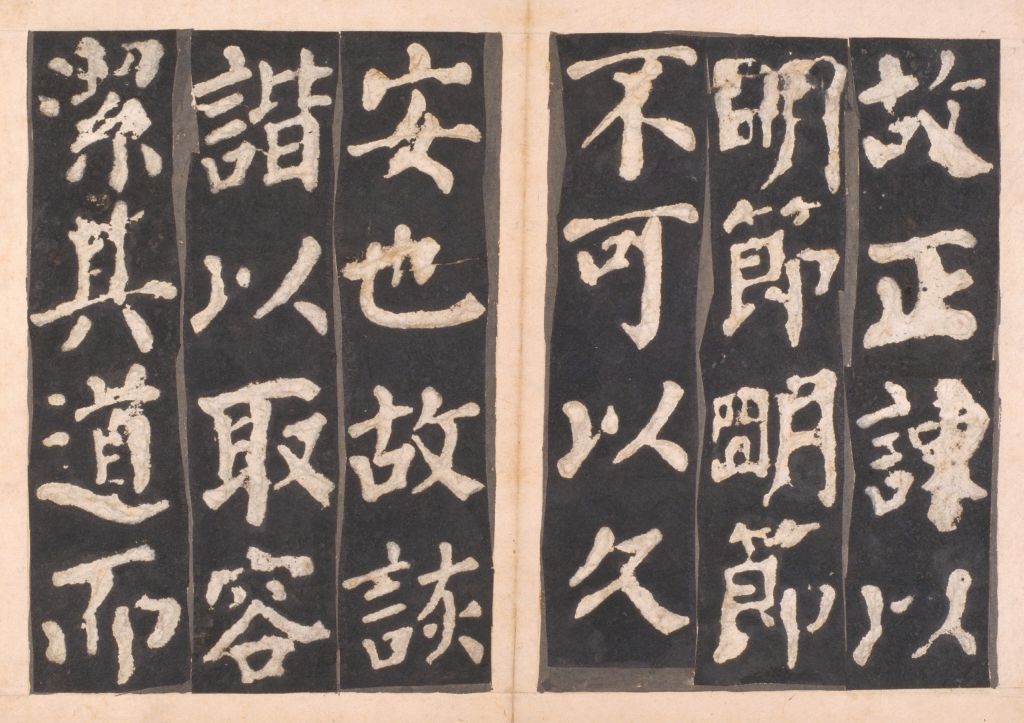 故正諫以
明節朙節
不可以久
安也故詼
諧以取容
潔其道而